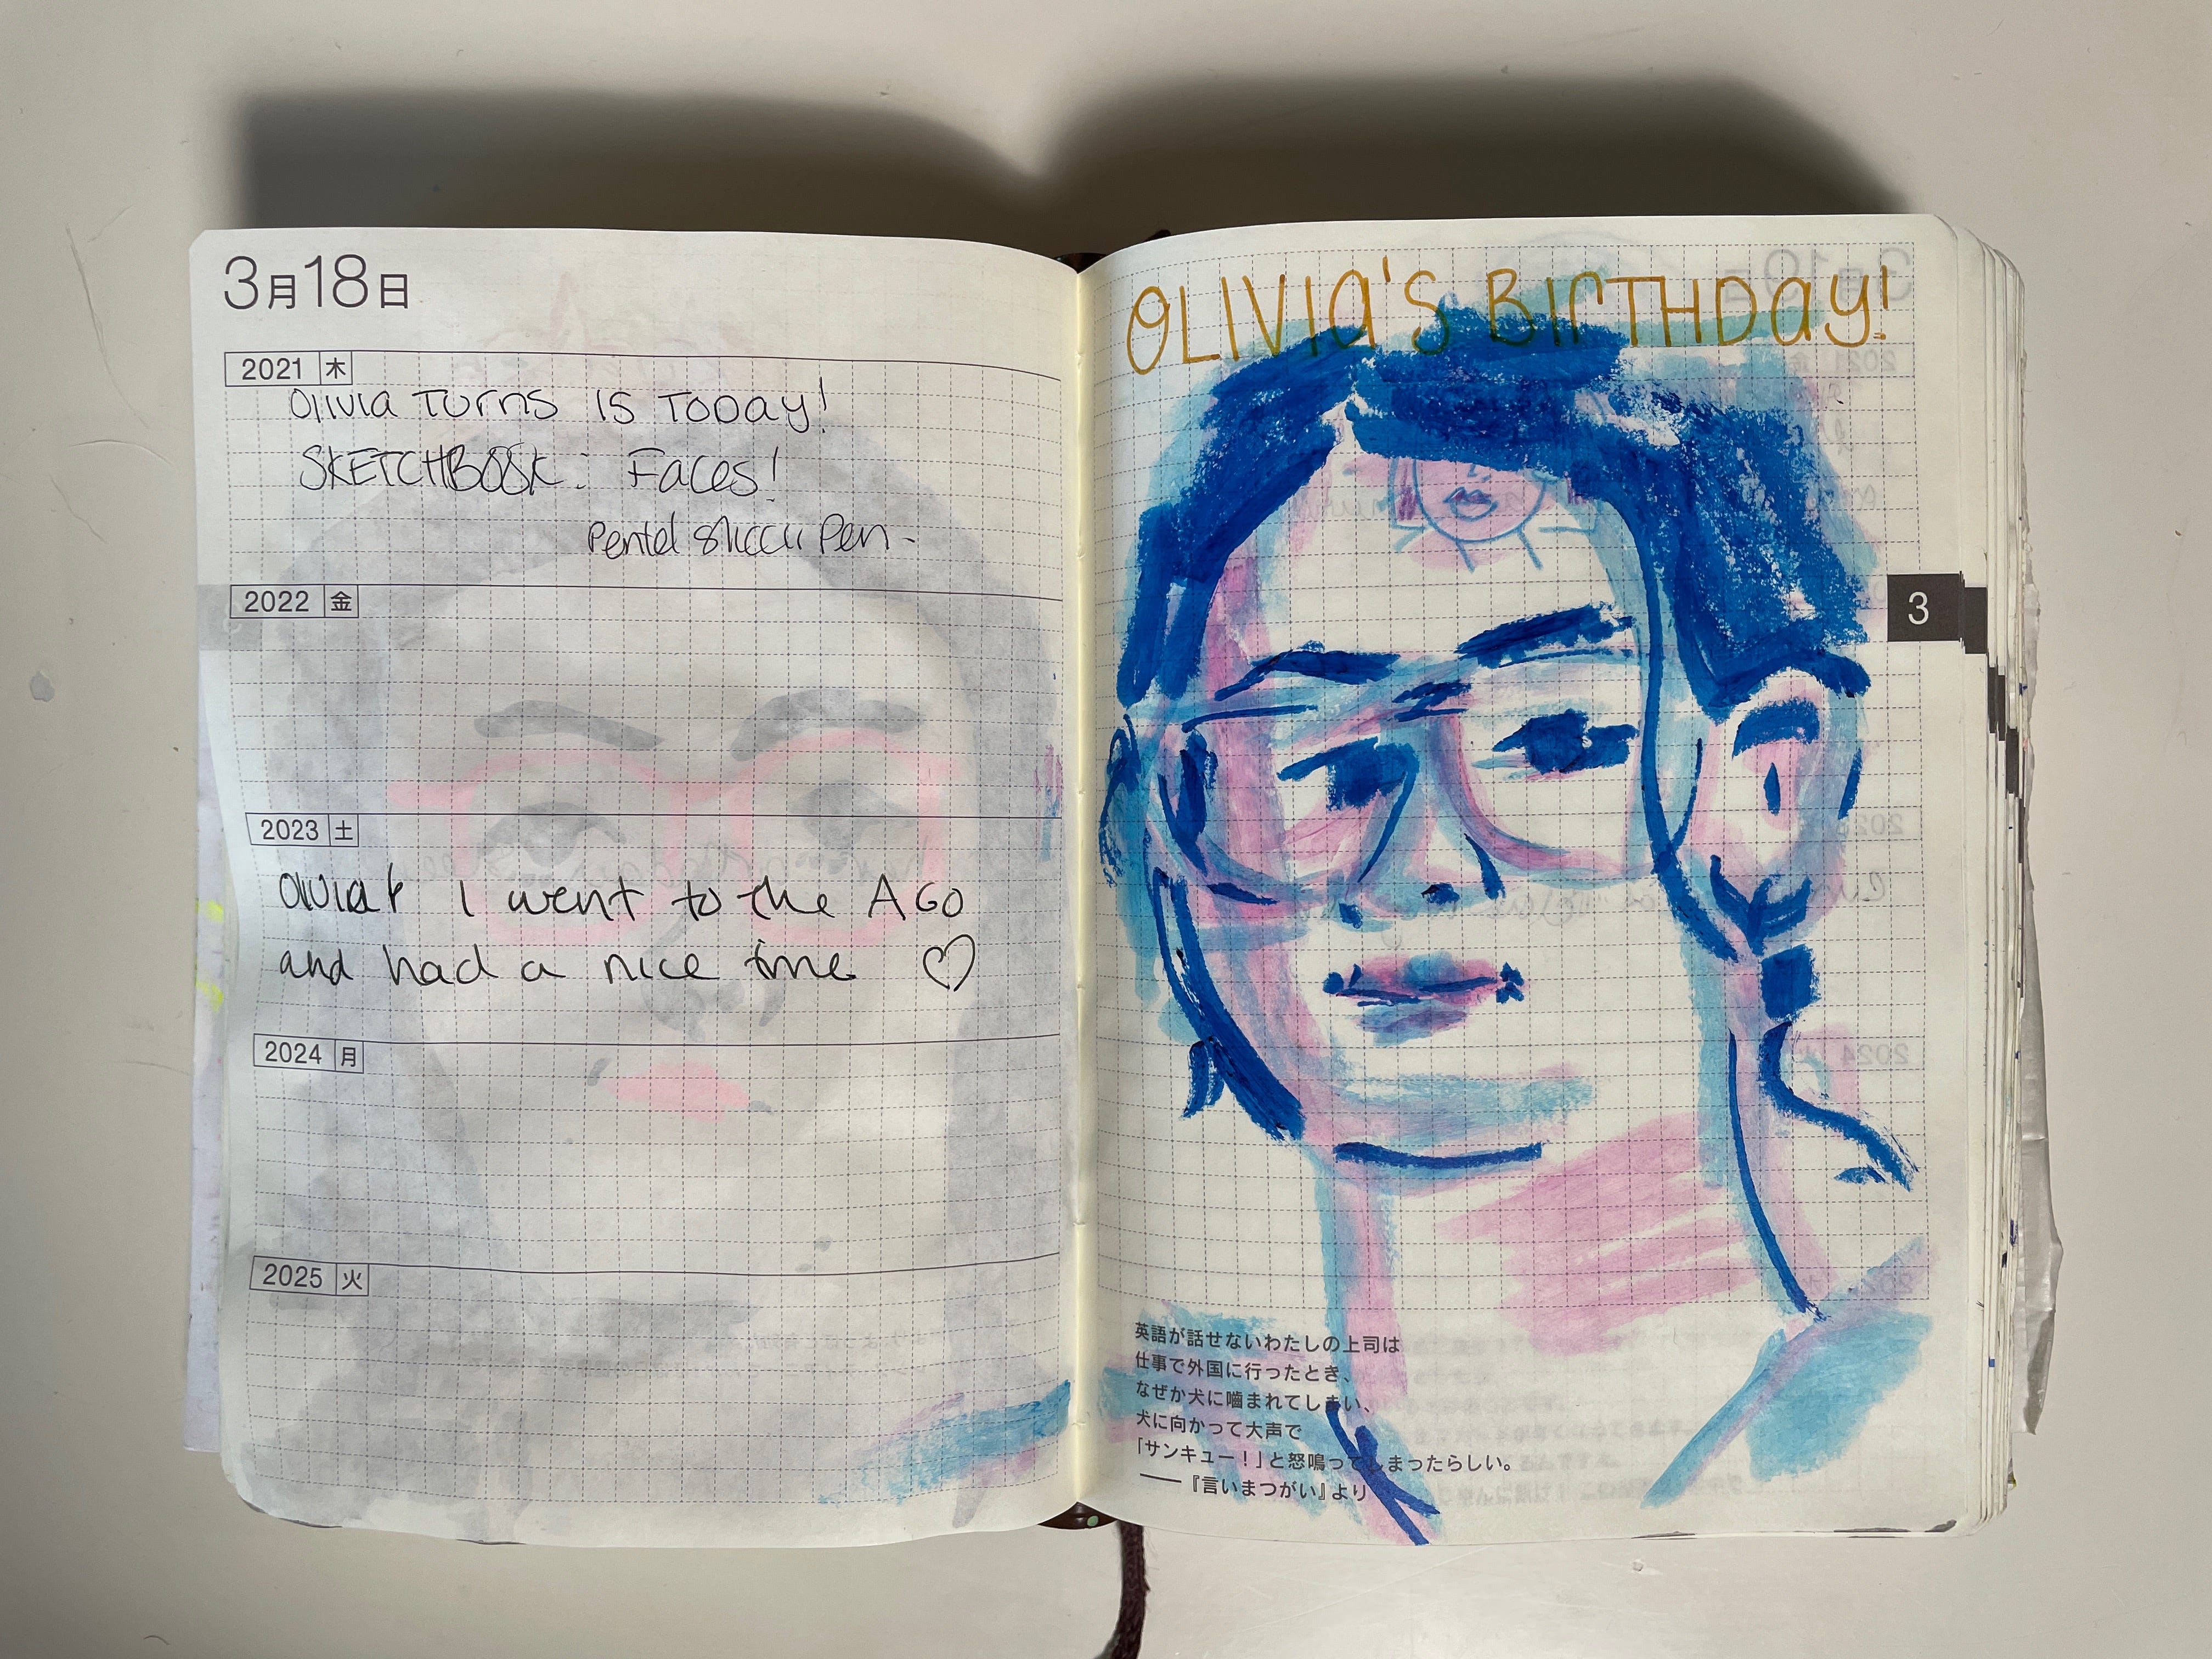 3月18日
2021 木
Olivia Turns 15 Today!
SKETCHBOOK: Faces!
Pentel Slicci Pen-
2022 金
2023 土
Olivia & I went to the AGO
and had a nice time ♡
2024 月
2025 火
OLIVIA'S BIRTHDAY!
3
英語が話せないわたしの上司は
仕事で外国に行ったとき、
なぜか犬に噛まれてしまい、
犬に向かって大声で
「サンキュー!」と怒鳴ってしまったらしい。
——『言いまつがい』より